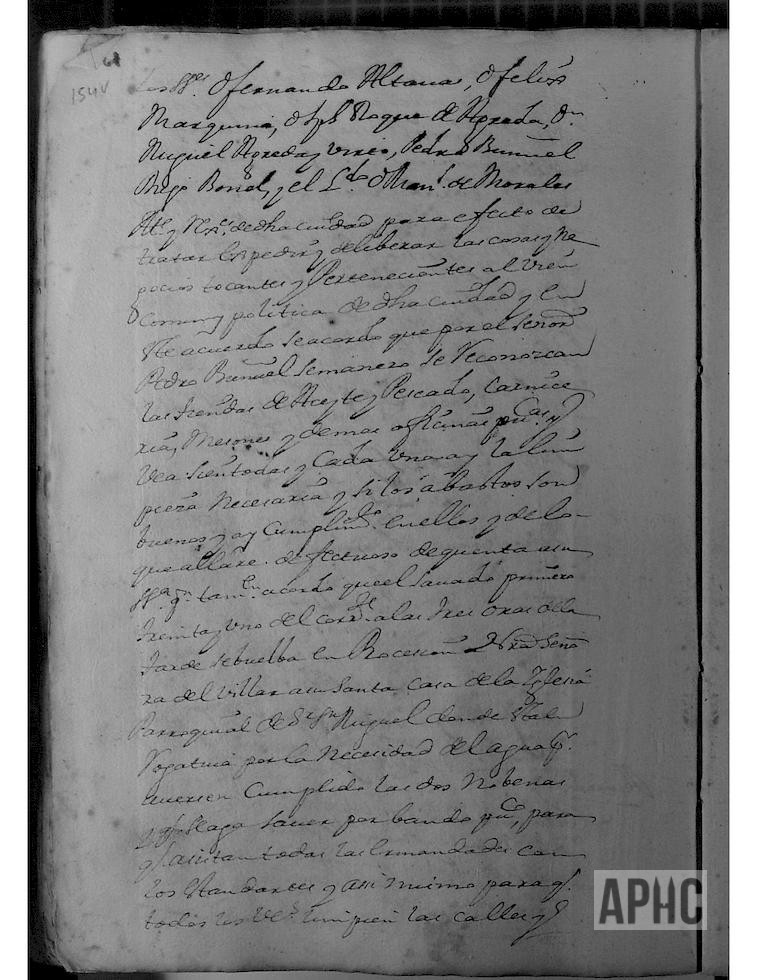 154v
los SSres. Dn fernando Altaua, Dn felix
Marquina, Dn Jph Roque de Agreda, Dn
Miguel Agreda y Vrrio, Pedro Buñuel
Borgol, y el Ldo. Dn Manl. de Morales
de dha ciudad para efecto de
tratar Espedir y deliberar las cosas y Ne
gocios tocantes y Pertenecientes al Vien
Comun y politica de dha ciudad y en
Ste acuerdo Se acordo que por el Señor
Pedro Buñuel Semanero Se Reconozcan
las tiendas de Aceyte y Pescado, Carnice
rias, Mesones y demas oficinas pucas. y
Vea Si en todas y Cada Una ay la lim
pieza Necesaria y Si los abastos Son
buenos y ay Cumplimto. en ellos y de lo
que allare defectuoso de quenta a su
Sa. y tamen. acordo que el Sauado primero
treinta y Uno del corrte. a las tres oras de la
tarde Se buelba en Procesion a Nra Seño
ra del Villar a su Santa Casa de la Iglesia
Parroquial de Sr Sn Miguel donde Sta en
Rogatiua por la Necesidad del agua pr.
auerse Cumplido las dos Nobenas
y Se aga Sauer por bando puco, para
q asistan todas las Ermandades con
los Standartes y assi mismo para q.
todos los Vos. limpien las calles y
APHC